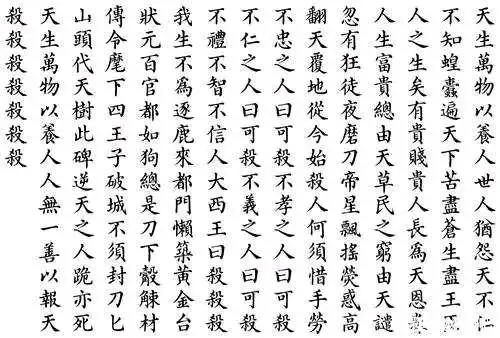 天生萬物以養人世人猶怨天不仁
不知蝗蠹遍天下苦盡蒼生盡王
人之生矣有貴賤貴人長爲天恩
人生富貴總由天草民之窮由天譴
忽有狂徒夜磨刀帝星飄搖熒惑高
翻天覆地從今始殺人何須惜手勞
不忠之人曰可殺不孝之人曰可殺
不仁之人曰可殺不義之人曰可殺
不禮不智不信人大西王曰殺殺殺
我生不爲逐鹿來都門懶築黃金台
狀元百官都如狗總是刀下觳觫材
傳令麾下四王子破城不須封刀匕
山頭代天樹此碑逆天之人跪亦死
天生萬物以養人人無一善以報天
殺殺殺殺殺殺殺